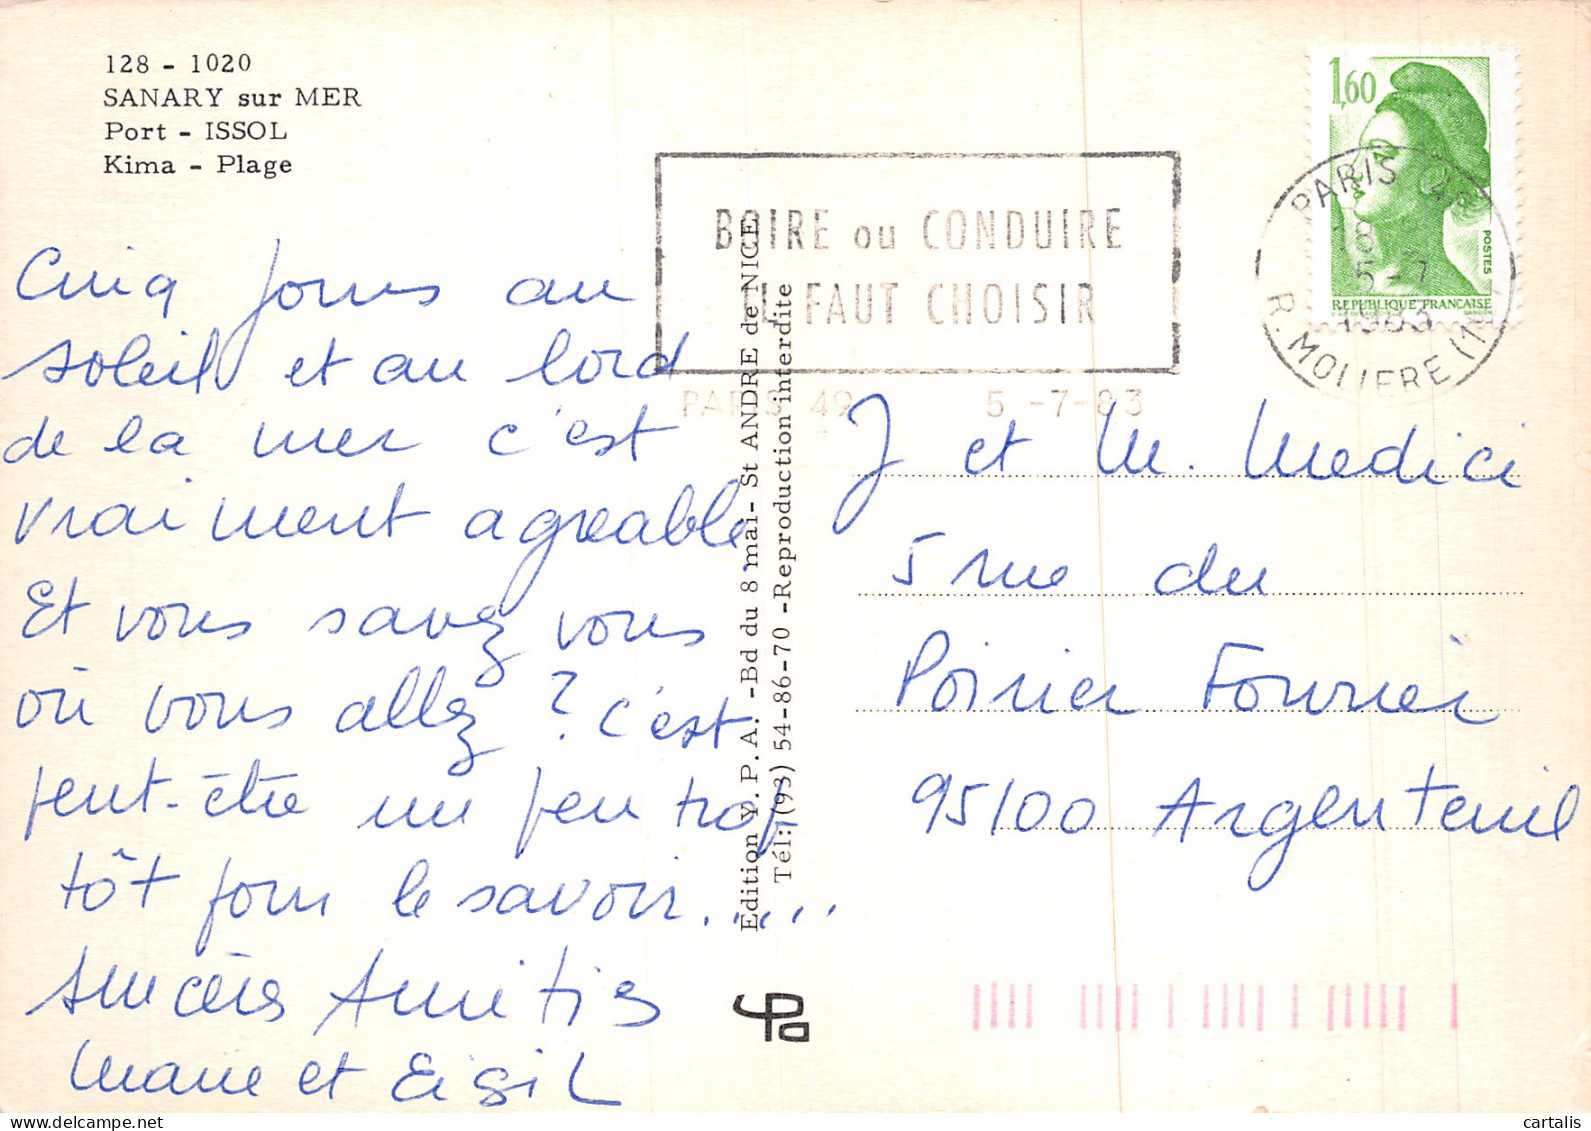 128 - 1020
SANARY sur MER
Port - ISSOL
Kima - Plage
Cinq jours au
soleil et au bord
de la mer c'est
vraiment agreable
Et vous savez vous
où vous allez ? C'est
peut-être un peu trop
tôt pour le savoir.....
sincères Amitiés
Marie et
Edition Y. P. A. -Bd du 8 mai- St ANDRE de NICE
Tél: (93) 54-86-70 -Reproduction interdite
BOIRE ou CONDUIRE
IL FAUT CHOISIR
PARIS 49 5 -7-83
1,60
POSTES
REPUBLIQUE FRANCAISE
GANDON
PARIS 49
18
5 -7
1983
R. MOLIERE (1
J et M. Medici
5 rue du
Poirier Fourrier
95100 Argenteuil
cartalis